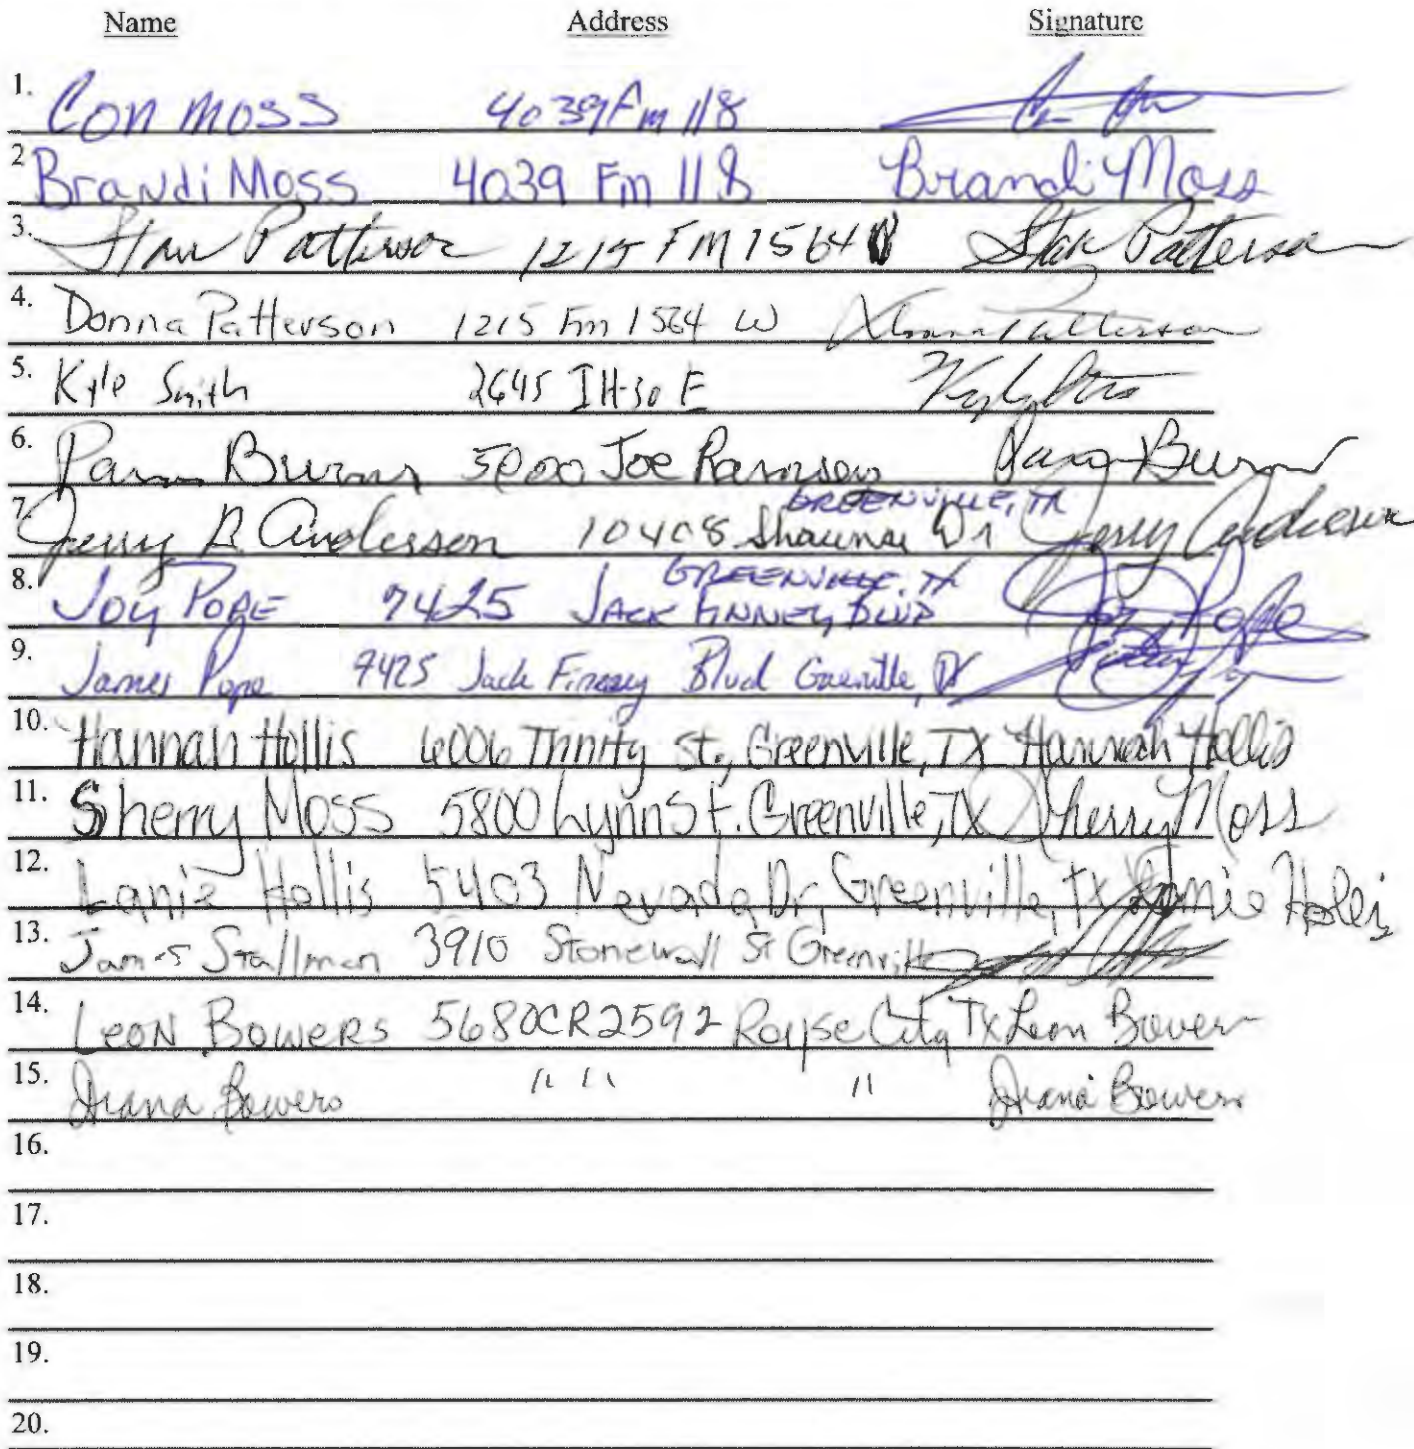 Name Address Signature
1. Con Moss 4039 Fm 118
2 Brandi Moss 4039 Fm 118 Brandi Moss
3. Stan Patterson 1215 FM 1564 Stan Patterson
4. Donna Patterson 1215 Fm 1564 W Donna Patterson
5. Kyle Smith 2645 IH-30 E
6. Burns 5000 Joe Ramsey Burns
GREENVILLE, TX
7. Jerry R. Anderson 10408 Shawnee Dr Jerry Anderson
GREENVILLE, TX
8. JOY POPE 7425 JACK FINNEY BLVD Joy Pope
9. James Pope 7425 Jack Finney Blvd Greenville, TX
10. Hannah Hollis 6006 Trinity St., Greenville, TX Hannah Hollis
11. Sherry Moss 5800 Lynn St. Greenville, TX Sherry Moss
12. Lanie Hollis 5403 Nevada Dr, Greenville, TX Lanie Hollis
13. James Stallman 3910 Stonewall St Greenville
14. LeoN BoweRs 5680CR2592 Royse City TX Leon Bowers
15. Diana Bowers " " " Diana Bowers
16.
17.
18.
19.
20.